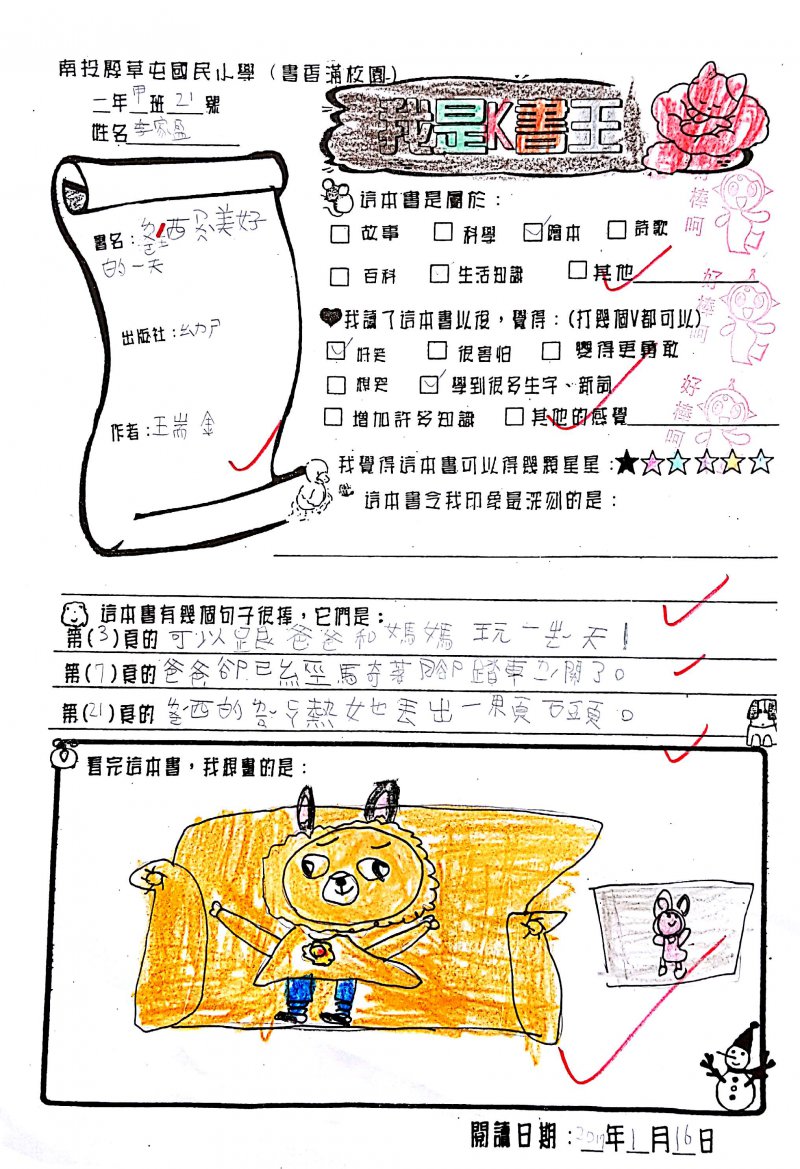 南投縣草屯國民小學(書香滿校園)
二年甲班21號
姓名李家盈
我是K書王
書名:爸西ㄋ美好
的一天
出版社:ㄠㄌㄕ
作者:王崙金
這本書是屬於:
□故事 □科學 ☑繪本 □詩歌
□百科 □生活知識 □其他
我讀了這本書以後,覺得:(打幾個V都可以)
☑好笑 □很害怕 □變得更勇敢
□想哭 ☑學到很多生字、新詞
□增加許多知識 □其他的感覺
我覺得這本書可以得幾顆星星:★☆☆☆☆☆
這本書令我印象最深刻的是:
好棒呵
好棒呵
好棒呵
這本書有幾個句子很棒,它們是:
第(3)頁的 可以跟爸爸和媽媽玩一整天!
第(7)頁的 爸爸卻已經騎著腳踏車離開了。
第(21)頁的 西的 熱 她丟出一顆石頭。
看完這本書,我想畫的是:
閱讀日期:年1月16日